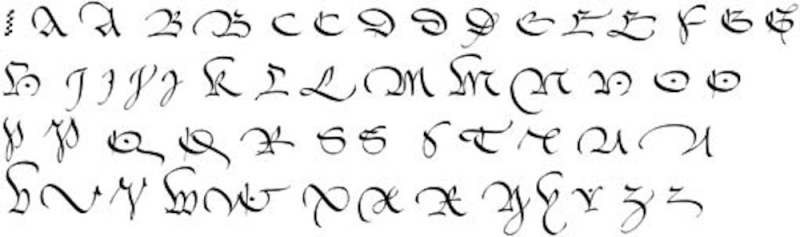 A A B B C C D D D E E E F G G
H I I J J K L L M M N N O O
P P Q Q R S S S T T U U
V V V W W X X X Y Y Y Z Z